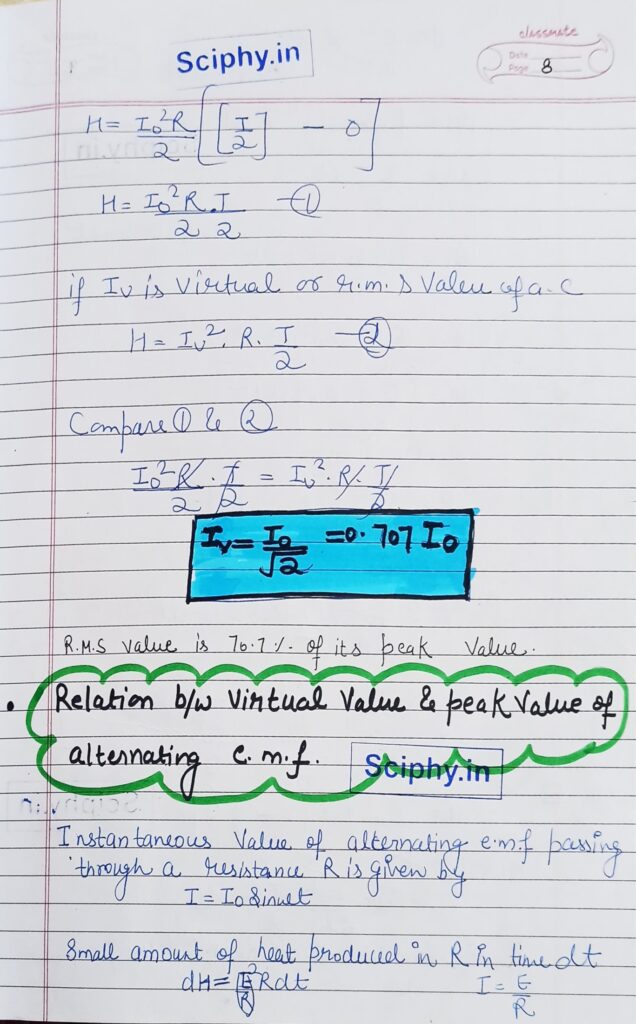 classmate
Date
Page 8
Sciphy.in
H = I₀²R/2 [[T/2] - 0]
H = I₀²R/2 . T/2 —①
if Iv is Virtual or r.m.s Value of a.c
H = Iv². R. T/2 —②
Compare ① & ②
I₀²R/2 . T/2 = Iv². R. T/2
Iv = I₀/√2 = 0.707 I₀
R.M.S value is 70.7 %. of its peak Value.
• Relation b/w Virtual Value & peak Value of
alternating e.m.f.
Sciphy.in
Instantaneous Value of alternating e.m.f passing
through a resistance R is given by
I = I₀ Sinωt
Small amount of heat produced in R in time dt
dH = (E/R)² R dt I = E/R